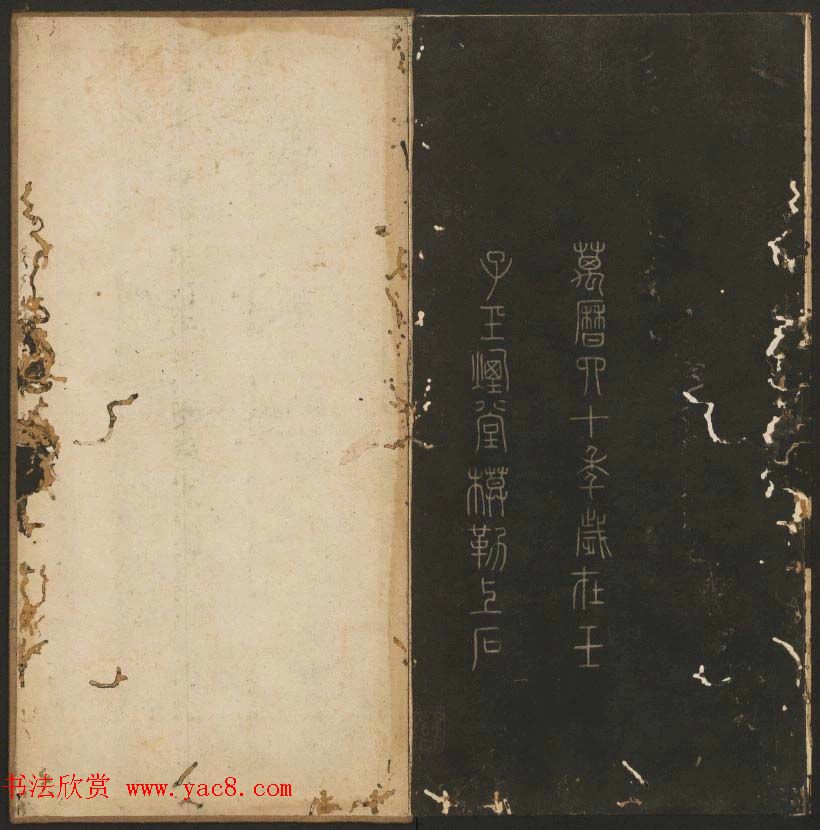 萬曆四十年歲在壬
子玉煙堂模勒上石
书法欣赏 www.yac8.com